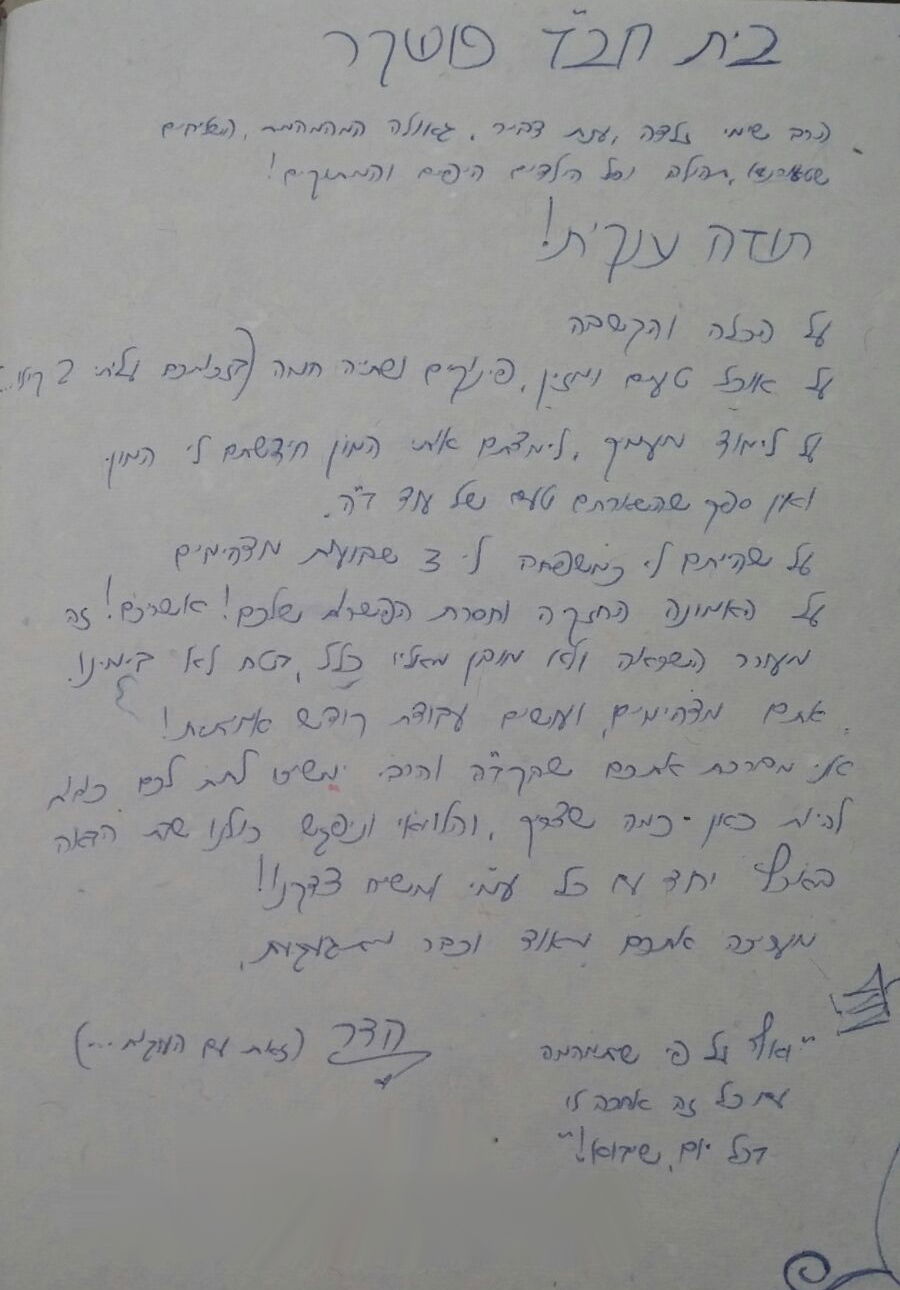 בית חב"ד פושקר
הרב שימי זלדה, דביר, גאולה המהממת, האיחים
תהילה וכל הילדים היפים והמתוקים!
תודה ענקית!
על הכלה והקשבה
על אוכל טעים ומזין, פינוקים ושתיה חמה (בזכותכם עליתי 2 קילו..)
על לימוד מעמיק, לימדתם אותי המון חידשתם לי המון
ואין ספק שהשארתם טעם של עוד ב"ה.
על שהייתם לי כמשפחה ל 3 שבועות מדהימים
על האמונה החזקה וחסרת הפשרות שלכם! אשריכם! זה
מעורר השראה ולא מובן מאליו כלל, בטח לא בימינו.
אתם מדהימים ועושים עבודת קודש אמיתית!
אני מברכת אתכם שהקב"ה והרבי ימשיכו לתת לכם כוחות
להיות כאן כמה שצריך, והלוואי וניפגש כולנו שנה הבאה
יחד עם כל עמ"י ומשיח צדקנו!
מעריכה אתכם מאוד וכבר מתגעגעת,
הדר (זאת עם העוקם...)
"ואף על פי שיתמהמה
עם כל זה אחכה לו
בכל יום שיבוא!"